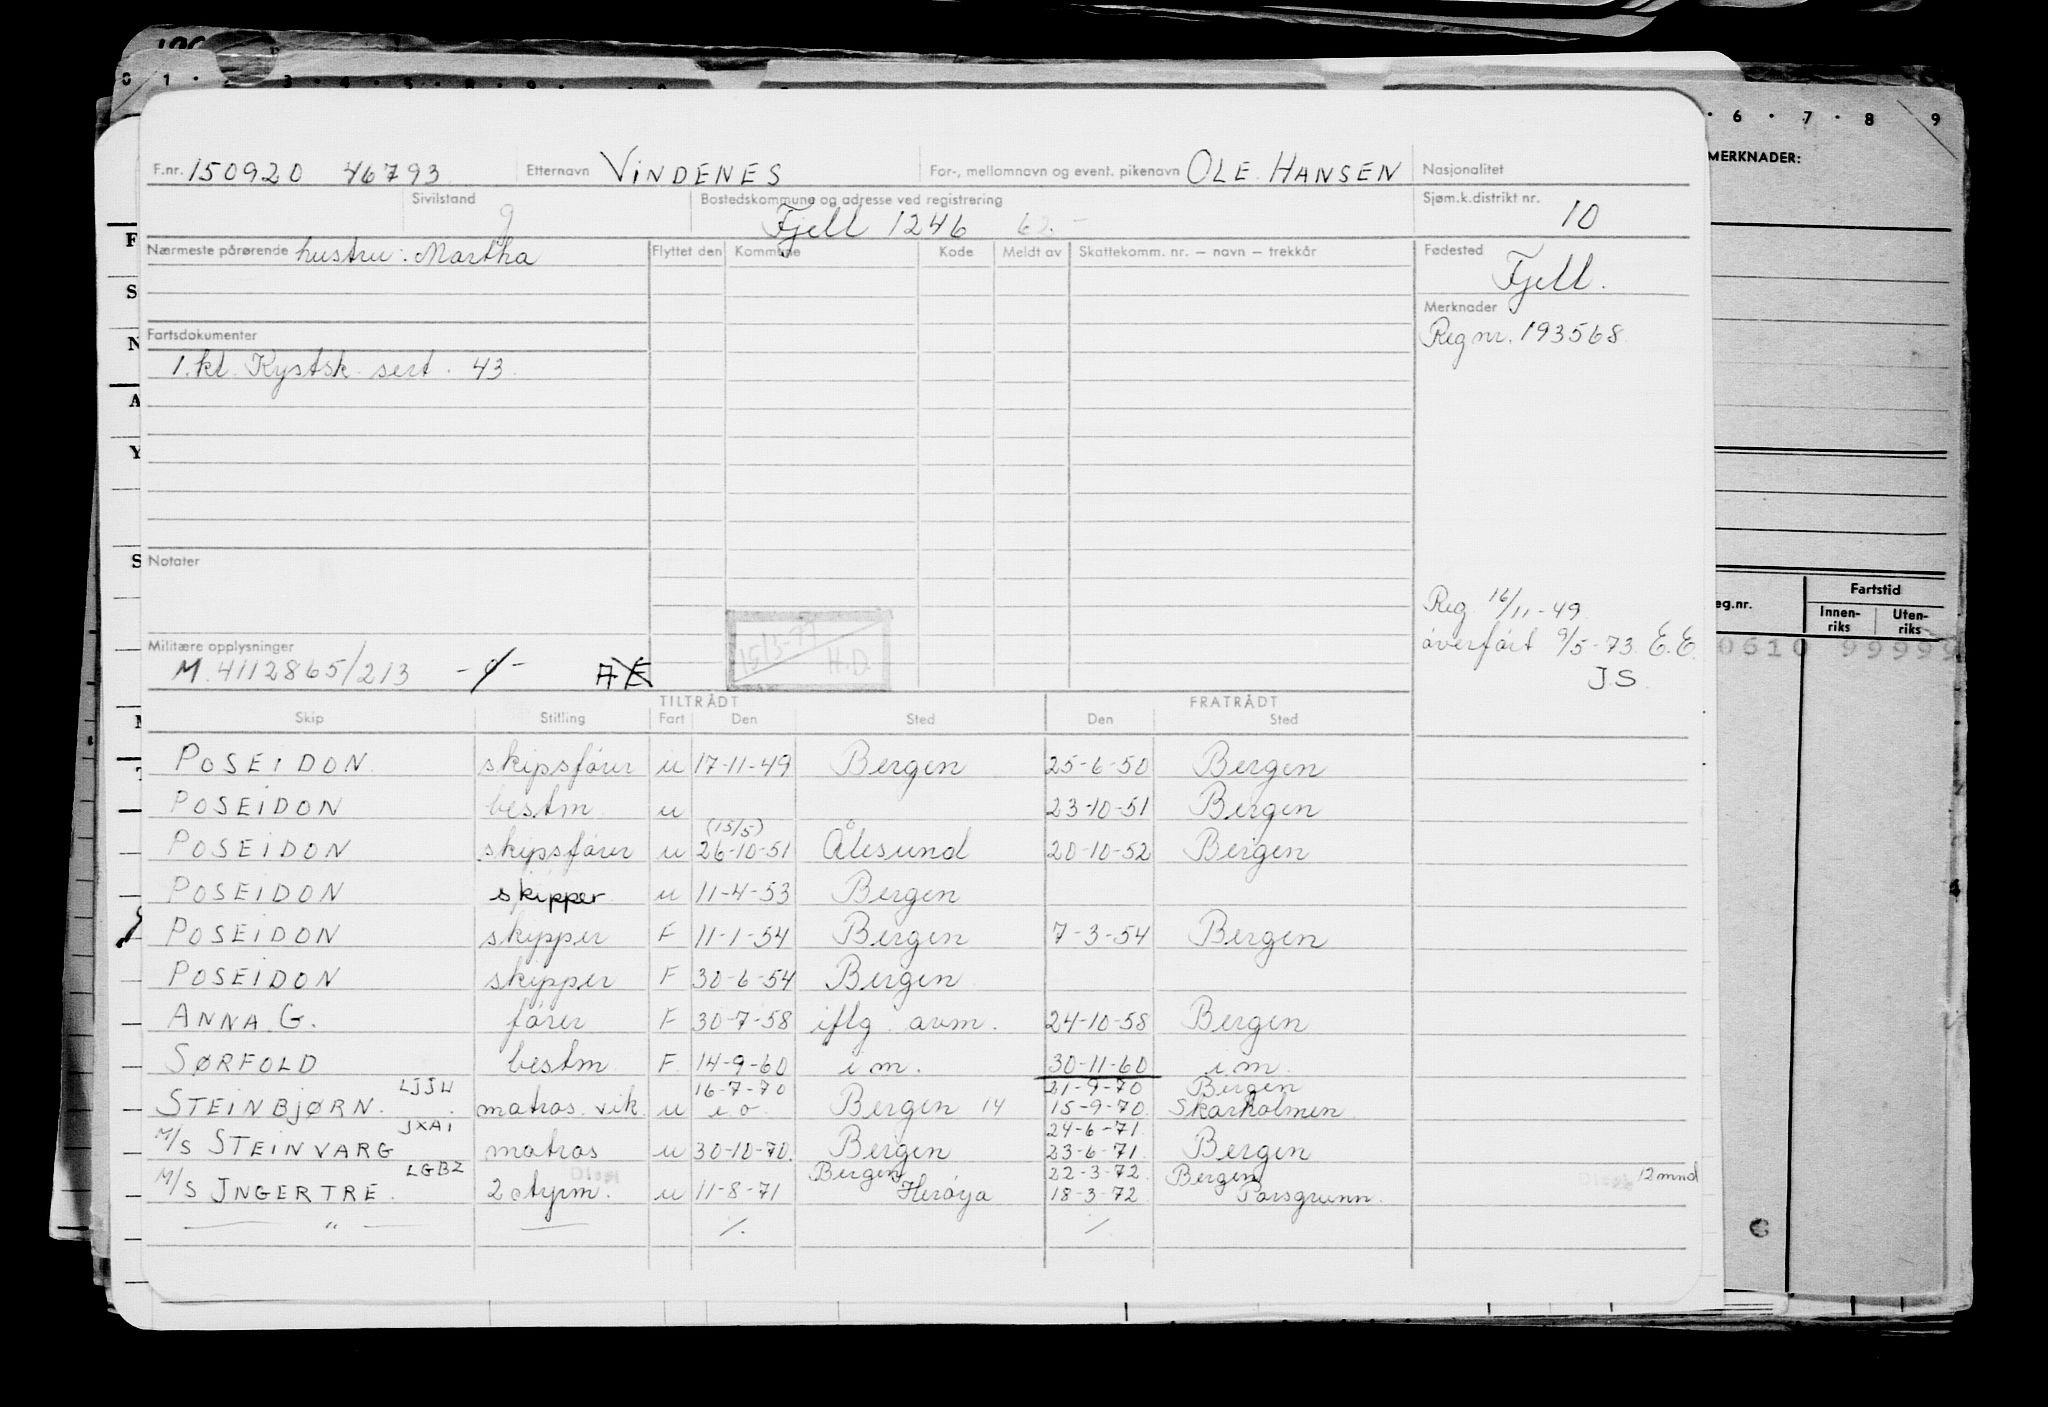 0 1 · 3 · 4 · 5 · 8 · 9 ·
· 6 · 7 · 8 9
MERKNADER:
F.nr. 150920 46793 Etternavn VINDENES For-, mellomnavn og event. pikenavn OLE HANSEN Nasjonalitet
Sivilstand g Bostedskommune og adresse ved registrering Fjell 1246 62.- Sjøm.k.distrikt nr. 10
Nærmeste pårørende hustru: Martha Flyttet den Kommune Kode Meldt av Skattekomm. nr. – navn – trekkår Fødested Fjell.
Merknader
Reg nr. 193568
Fartsdokumenter
1. kl. Kystsk. sert. 43.
Notater
Reg. 16/11-49
overført 9/5-73 E.E.
J.S.
Militære opplysninger
M. 4112865/213
15/3-77 H.D.
eg.nr. Fartstid
Innen-riks Uten-riks
0610 99999
TILTRÅDT FRATRÅDT
Skip Stilling Fart Den Sted Den Sted
POSEIDON skipsfører u 17-11-49 Bergen 25-6-50 Bergen
POSEIDON bestm. u 23-10-51 Bergen
(15/5)
POSEIDON skipsfører u 26-10-51 Ålesund 20-10-52 Bergen
POSEIDON skipper u 11-4-53 Bergen
POSEIDON skipper F 11-1-54 Bergen 7-3-54 Bergen
POSEIDON skipper F 30-6-54 Bergen
ANNA G. fører F 30-7-58 iflg. avm. 24-10-58 Bergen
SØRFOLD bestm. F. 14-9-60 i.m. 30-11-60 i.m.
LJJW 16-7-70 21-9-70 Bergen
STEINBJØRN. matros. vik. u i o Bergen 14 15-9-70 Skarholmen
JXAI 24-6-71
M/S STEINVARG matros u 30-10-70. Bergen 23-6-71 Bergen
LGBZ Bergen 22-3-72 Bergen 12 mnd
M/S INGERTRE. 2 styrm. u 11-8-71 Herøya 18-3-72 Porsgrunn.
— " — — /. /